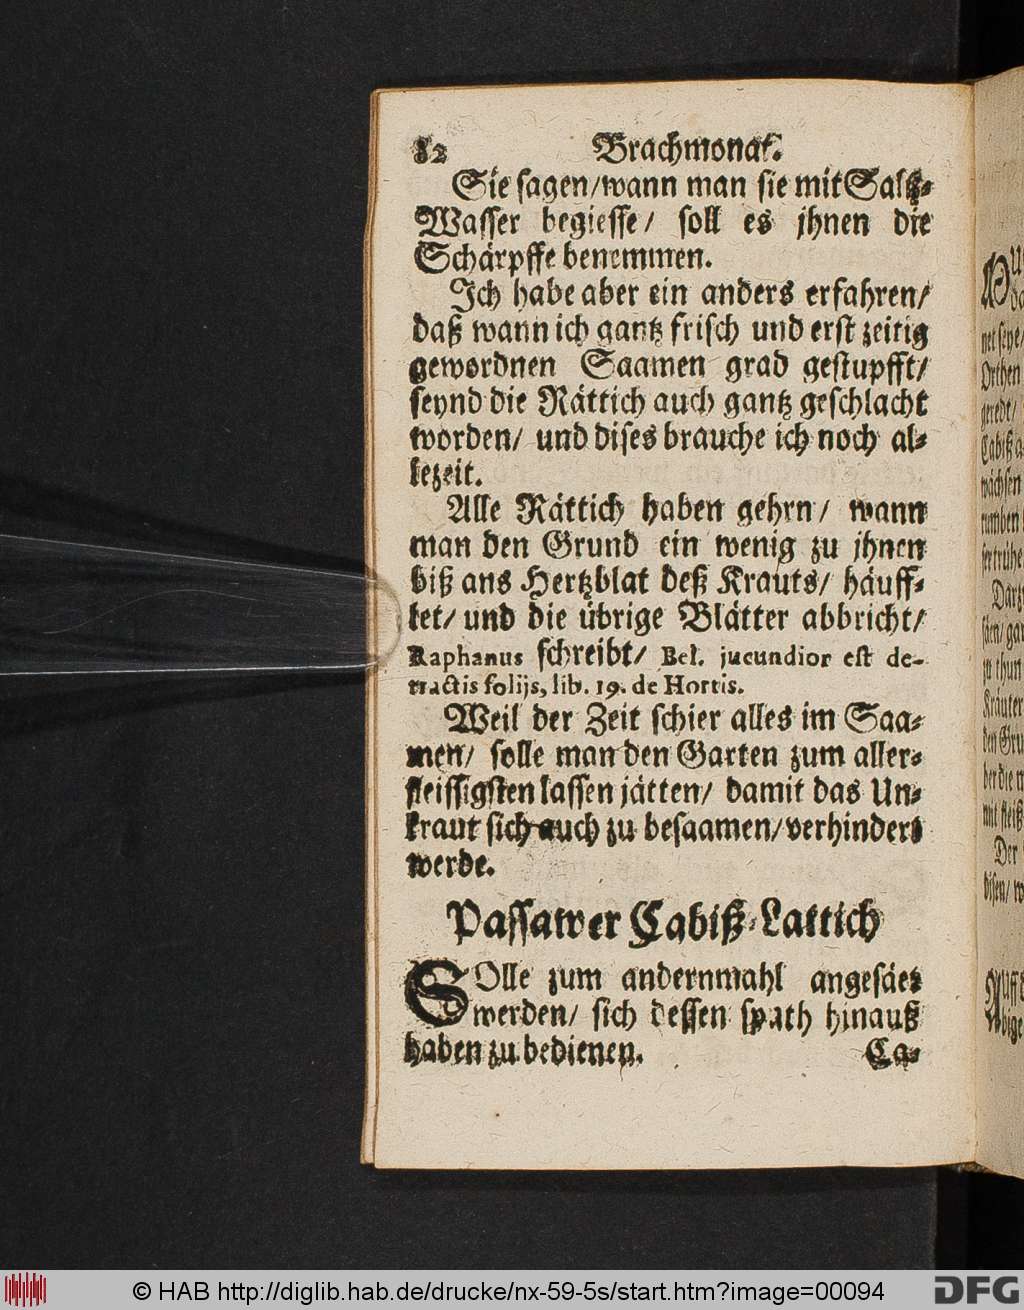 82 Brachmonat.
Sie sagen/wann man sie mit Saltz-
Wasser begiesse/ soll es jhnen die
Schärpffe benemmen.
Jch habe aber ein anders erfahren/
daß wann ich gantz frisch und erst zeitig
gewordnen Saamen grad gestupfft/
seynd die Rättich auch gantz geschlacht
worden/ und dises brauche ich noch al-
lezeit.
Alle Rättich haben gehrn/ wann
man den Grund ein wenig zu jhnen
biß ans Hertzblat deß Krauts/ häuff-
let/ und die übrige Blätter abbricht/
Raphanus schreibt/ Bel. jucundior est de-
tractis folijs, lib. 19. de Hortis.
Weil der Zeit schier alles im Saa-
men/ solle man den Garten zum aller-
fleissigsten lassen jätten/ damit das Un-
kraut sich auch zu besaamen/verhindert
werde.
Passawer Cabiß-Lattich
SOlle zum andernmahl angesäet
werden/ sich dessen spath hinauß
haben zu bedienen.
Ca-
© HAB http://diglib.hab.de/drucke/nx-59-5s/start.htm?image=00094
DFG